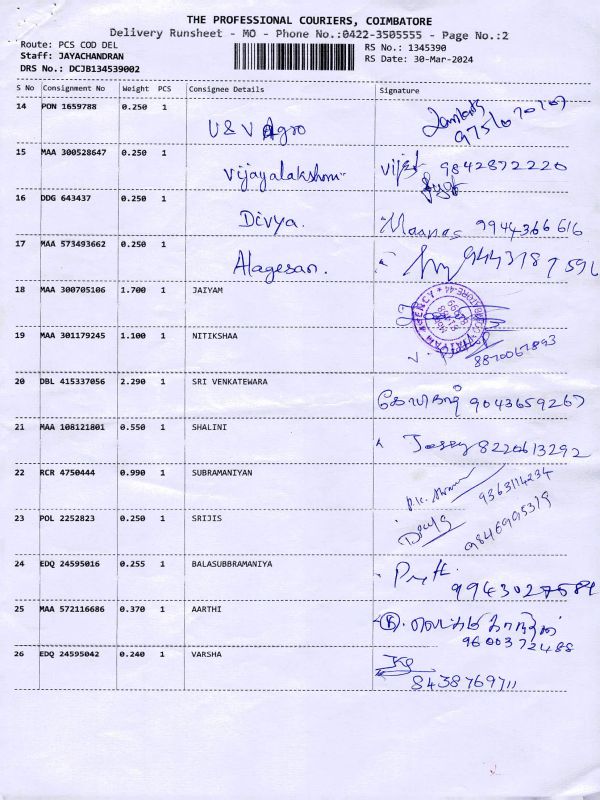 THE PROFESSIONAL COURIERS, COIMBATORE
Delivery Runsheet - MO - Phone No.:0422-3505555 - Page No.:2
Route: PCS COD DEL
RS No.: 1345390
Staff: JAYACHANDRAN
RS Date: 30-Mar-2024
DRS No.: DCJB134539002
S No Consignment No Weight PCS Consignee Details Signature
14 PON 1659788 0.250 1 U & V Agro
15 MAA 300528647 0.250 1 Vijayalakshmi 9842872220
16 DDG 643437 0.250 1 Divya. Maanas 9944366616
17 MAA 573493662 0.250 1 Alagesan.
18 MAA 300705106 1.700 1 JAIYAM
19 MAA 301179245 1.100 1 NITIKSHAA 8870067893
20 DBL 415337056 2.290 1 SRI VENKATEWARA 9043659267
21 MAA 108121801 0.550 1 SHALINI Jessy 8220613292
22 RCR 4750444 0.990 1 SUBRAMANIYAN 9363114234
23 POL 2252823 0.250 1 SRIJIS 9846995319
24 EDQ 24595016 0.255 1 BALASUBBRAMANIYA
25 MAA 572116686 0.370 1 AARTHI 9600372488
26 EDQ 24595042 0.240 1 VARSHA 8438769711